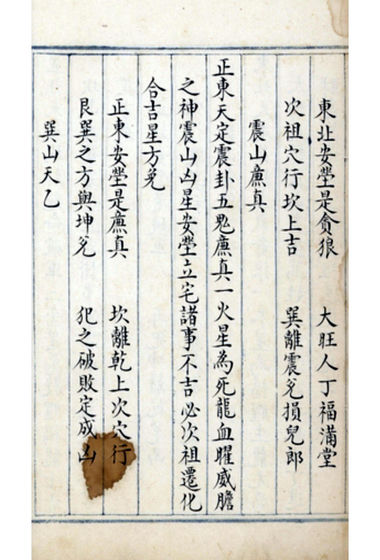 東北安塋是貪狼 大旺人丁福滿堂
次祖穴行坎上吉 巽離震兌損兒郎
震山廉貞
正東天定震卦五鬼廉貞一火星為死龍血曜威膽
之神震山凶星安塋立宅諸事不吉必次祖遷化
合吉星方免
正東安塋是廉真 坎離乾上次穴行
艮巽之方與坤兌 犯之破敗定成凶
巽山天乙